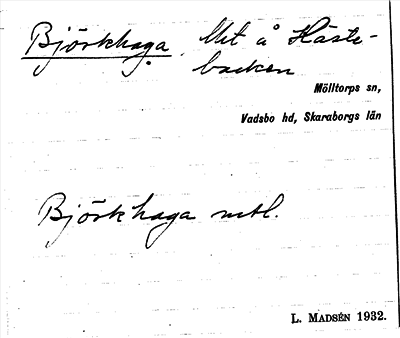 Björkhaga. Utt å Häste-
backen
Mölltorps sn,
Vadsbo hd, Skaraborgs län
Björkhaga mtl.
L. MADSÉN 1932.